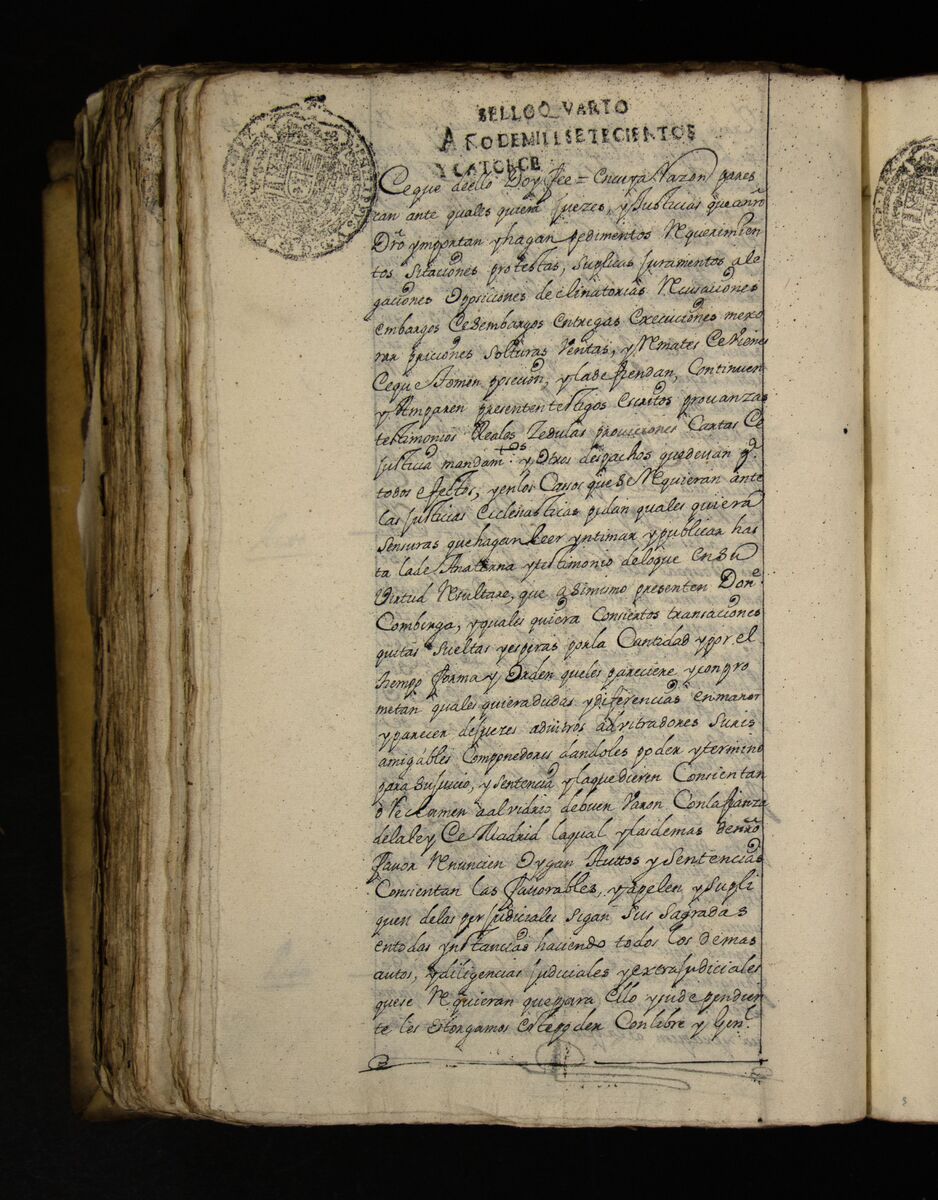 SELLOQVARTO
AÑODEMILLSETECIENTOS
YCATORCE
Ce que deello Doyfee = Encuya Razon pares
can ante quales quiera Juezes, y Justicias que a nrõ
Drõ ymportan yhagan pedimentos Requerimien
tos sitaciones protestas, suplicas Juramentos ale
gaciones Oposiciones declinatorias Recusaciones
embargos Cesembargos entregas Execuciones mexo
ras priciones Solturas Ventas, y Remates Ce Vienes
Ceque tomen posecion, y la defiendan, Continuen
y Amparen presenten testigos Escritos provanzas
testimonios Reales Zedulas provisiones Cartas Ce
Justicia mandam.tos y Otros despachos que devan
todos efectos, yenlos Casos que se Requieran ante
las Justicias Eclesiasticas pidan quales quiera
Sensuras quehagan leer yntimar ypublicar has
ta lade Anatema ytestimonio deloque en su
Virtud Resultare, que asimismo presenten
Combenga, yquales quiera Consiertos transaciones
quitas Sueltas yesperas porla Cantidad ypor el
tiempo forma y Orden queles pareciere ycompro
metan quales quieradudas ydiferencias enmanos
yparecer deJuezes advitros advitradores Juris
amigables Componedores dandoles poder ytermino
para suJuicio, y sentencia ylaquedieren Consientan
o Reclamen aalvidrio debuen Varon Conlafianza
delaley Ce Madrid laqual ylasdemas denrõ
favor Renuncien Oygan Auttos y Sentencias
Consientan las favorables, yapelen y Supli
quen delas perjudiciales sigan Sus Sagradas
entodas ynstancias haciendo todos los demas
autos, ydiligencias Judiciales yextraJudiciales
quese Requieran quepara Ello ysudependien
te les otorgamos estepoder Conlibre y Gen.l